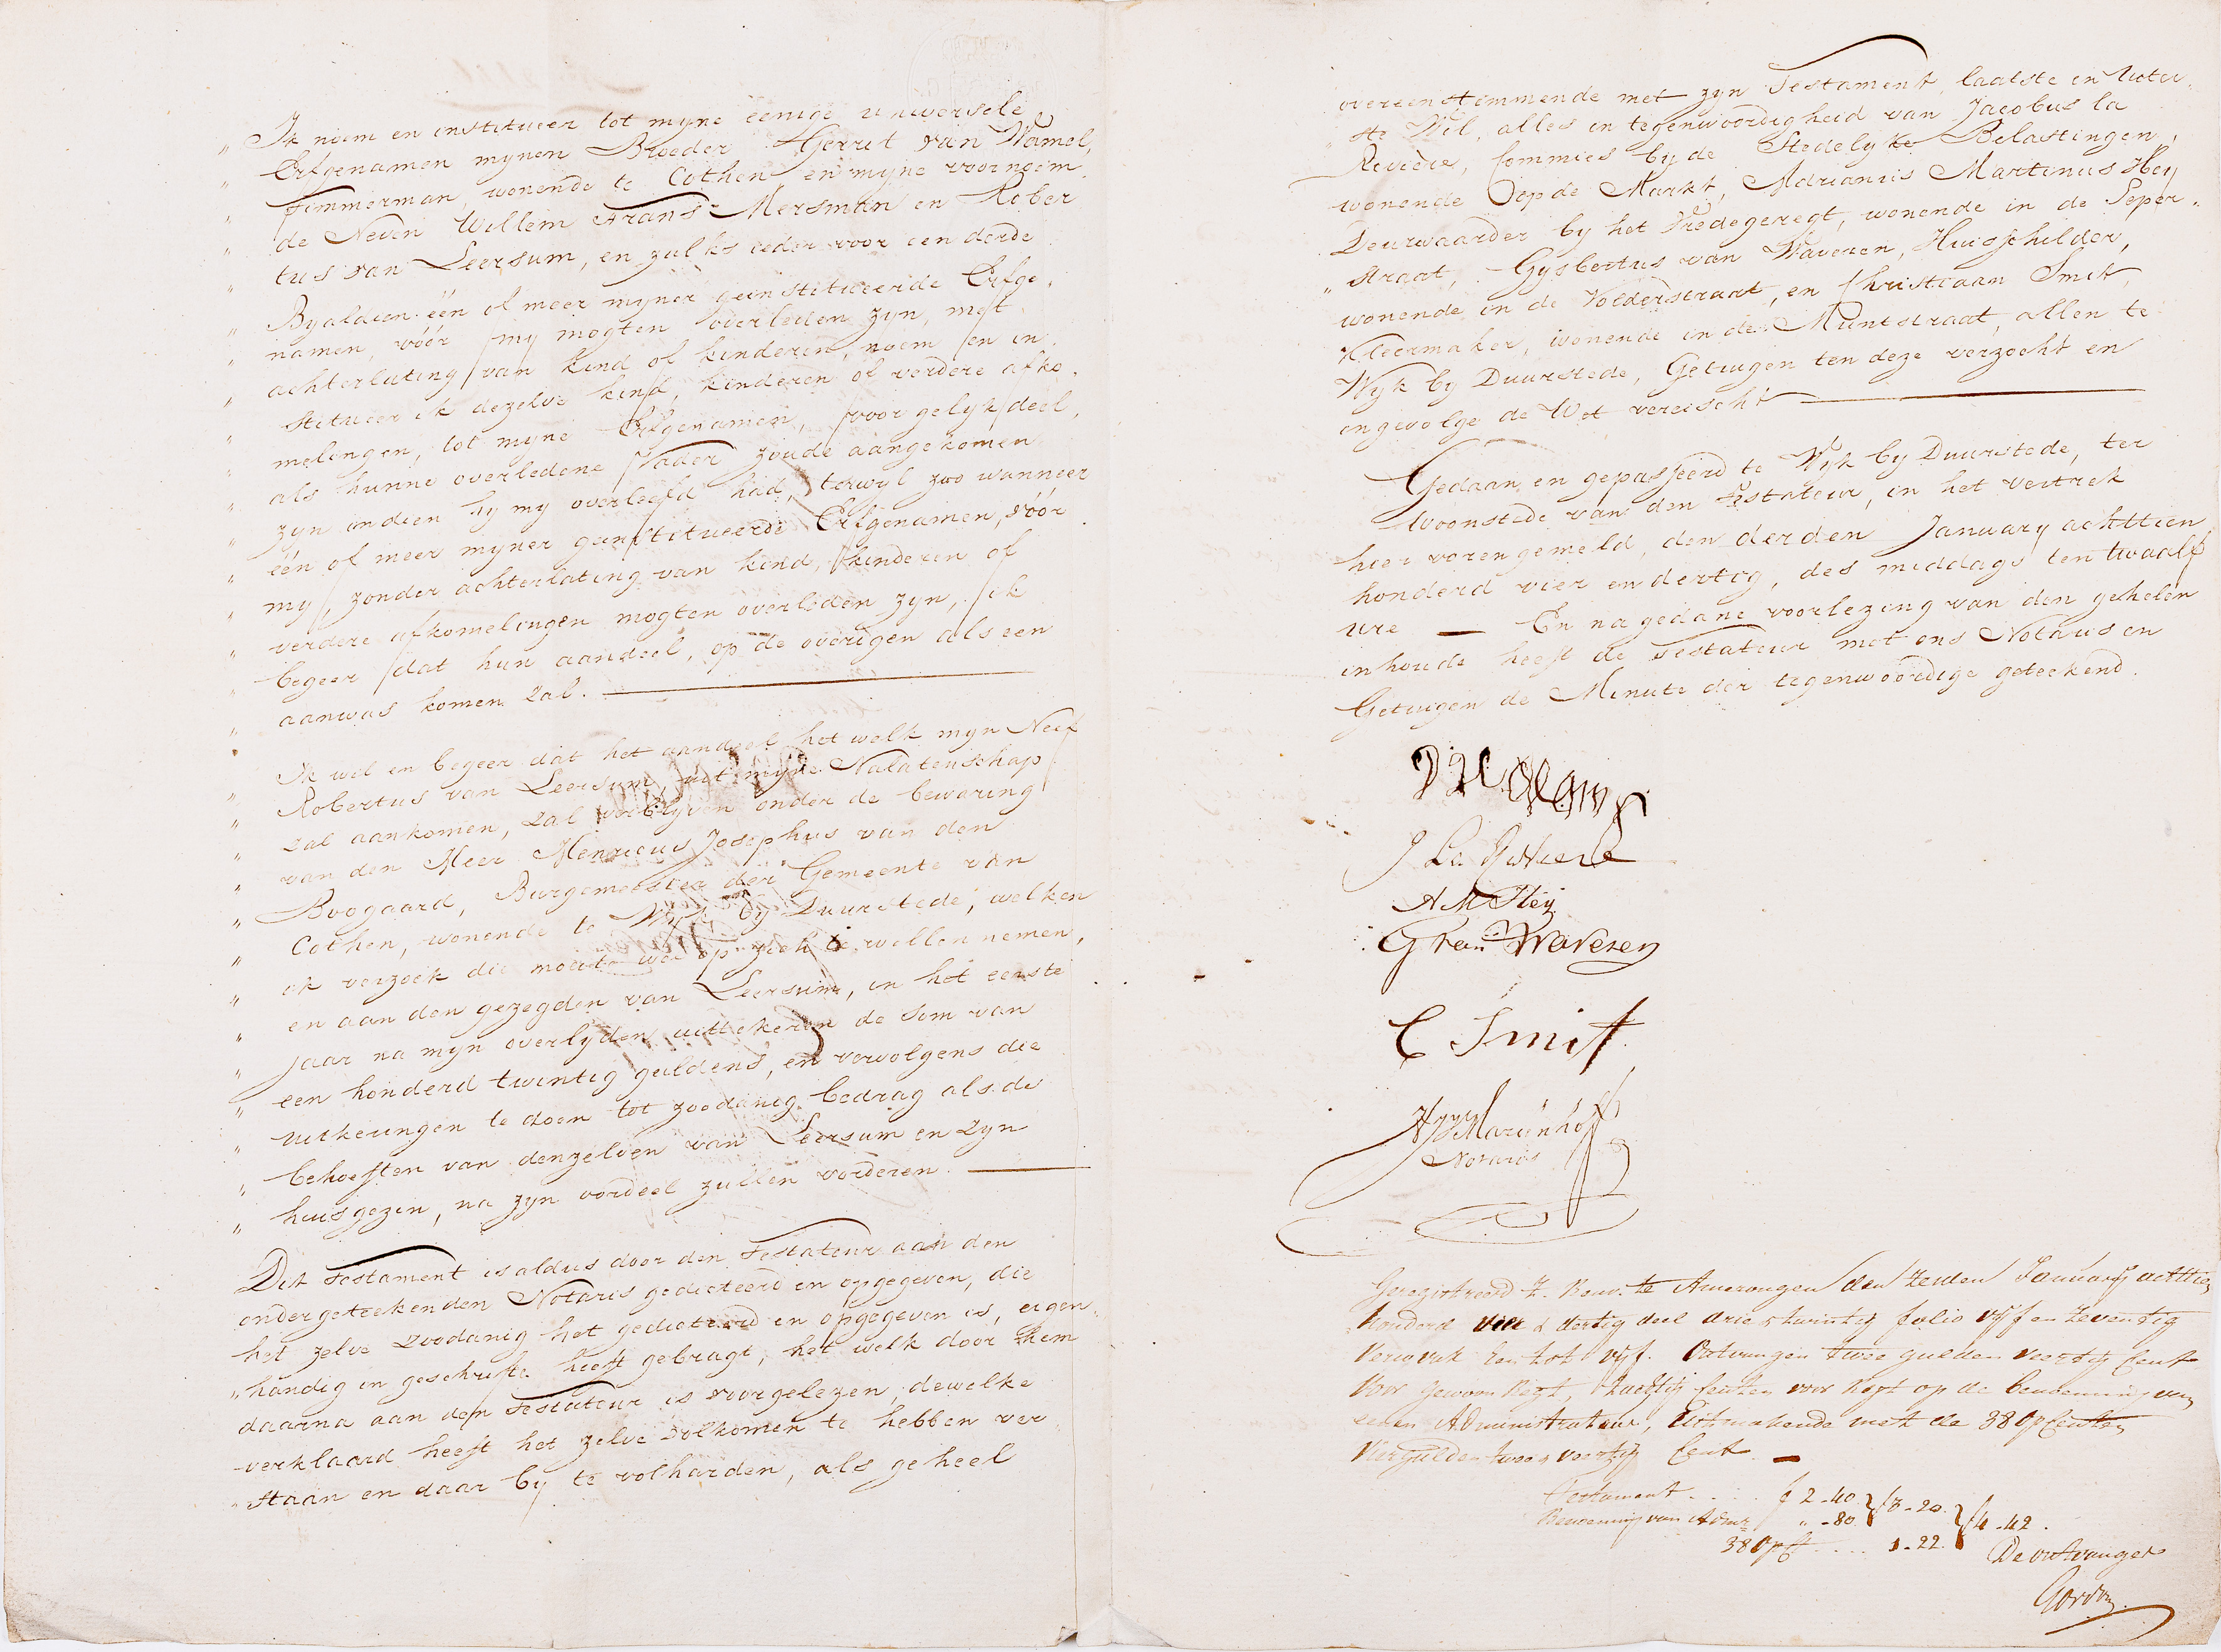 „ Ik noem en institueer tot myne eenige universele
„ Erfgenamen mynen Broeder Gerret van Wamel,
„ Timmerman, wonende te Cothen en myne voornoem„
„ de Neven Willem Frans Mersman en Rober„
„ tus van Leersum, en zulks ieder voor een derde
„ Byaldien één of meer myner geinstitueerde Erfge„
„ namen, vóór my mogten overleden zyn, met
„ achterlating van kind of kinderen, noem en in„
„ stitueer ik dezelve kind, kinderen of verdere afko„
„ melingen, tot myne Erfgenamen, voor gelyk deel,
„ als hunne overledene Vader zoude aangekomen
„ zyn indien hy my overleefd had, terwyl zoo wanneer
„ één of meer myner geinstitueerde Erfgenamen, vóór
„ my, zonder achterlating van kind, kinderen of
„ verdere afkomelingen mogten overleden zyn, ik
„ begeer dat hun aandeel, op de overigen als een
„ aanwas komen zal.
„ Ik wil en begeer dat het aandeel het welk myn Neef
„ Robertus van Leersum, uit myne Nalatenschap
„ zal aankomen, zal verblyven onder de bewaring
„ van den Heer Henricus Josephus van den
„ Boogaard, Burgemeester der Gemeente van
„ Cothen, wonende te Wyk by Duurstede, welken
„ ik verzoek die moeite wel op zich te willen nemen,
„ en aan den gezegden van Leersum, in het eerste
„ jaar na myn overlyden uittekeren de som van
„ een honderd twintig guldens, en vervolgens die
„ uitkeringen te doen tot zoodanig bedrag als de
„ behoeften van denzelven van Leersum en zyn
„ huisgezin, na zyn oordeel zullen vorderen.
Dit Testament is aldus door den Testateur aan den
ondergeteekenden Notaris gedicteerd en opgegeven, die
het zelve zoodanig het gedicteerd en opgegeven is, eigen„
„ handig in geschrifte heeft gebragt, het welk door hem
daarna aan den Testateur is voorgelezen, dewelke
verklaard heeft het zelve volkomen te hebben ver„
„ staan en daar by te volharden, als geheel
overeenstemmende met zyn Testament, laatste en Uiter„
„ ste Wil, alles in tegenwoordigheid van Jacobus la
Rivière, Commies by de Stedelyke Belastingen,
wonende op de Markt, Adrianus Martinus Hey
Deurwaarder by het Vredegeregt, wonende in de Peper„
„ straat, Gysbertus van Waveren, Huisschilder,
wonende in de Volderstraat, en Christiaan Smit,
Kleermaker, wonende in de Muntstraat, allen te
Wyk by Duurstede, Getuigen ten deze verzocht en
ingevolge de Wet vereischt
Gedaan en gepasseerd te Wyk by Duurstede, ter
Woonstede van den Testateur, in het vertrek
hier voren gemeld, den derden January achttien
honderd vier en dertig, des middags ten twaalf
ure — En na gedane voorlezing van den gehelen
inhoude heeft de Testateur met ons Notaris en
Getuigen de Minute der tegenwoordige geteekend.
J La Riviere
A M Hey
G van Waveren
C Smit
Notaris
Geregistreerd te Amerongen den zesden January achttien
honderd vier & dertig deel drie & twintig folio vyf en zeventig
Vervak Een tot vyf. Ontvangen twee gulden veertig Cent
voor gewoon Regt, tachtig Centen voor Regt op de benoeming van
eenen Administrateur, Uitmakende met de 38 Opcenten
Viergulden twee & veertig Cent.
Testament . . . . f 2-40 } f 3-20 } f 4-42.
Benoeming van Admr „ -80
38 Opct . . . . 1-22
De ontvanger
Gordon